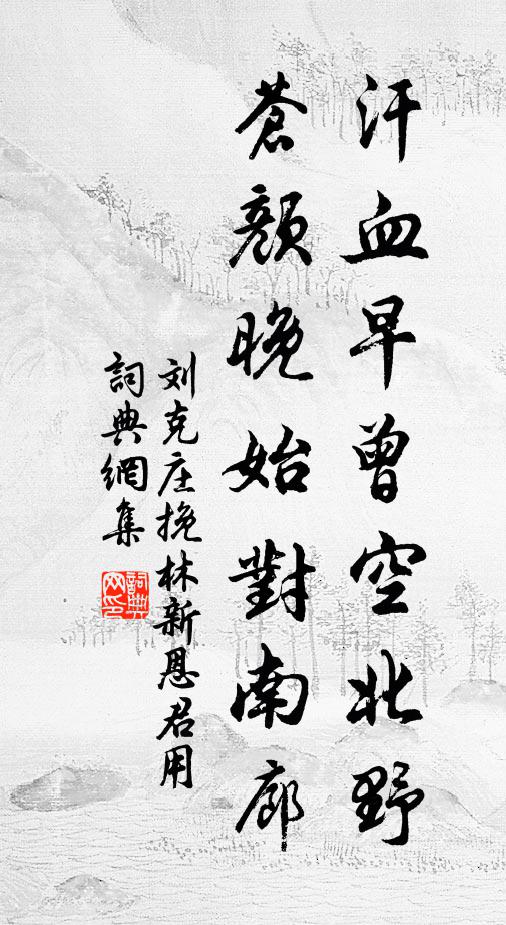 汗血早曾空北野
蒼顏晚始對南廊
刘克庄挽林新恩君用
詞典網集
詞典网印